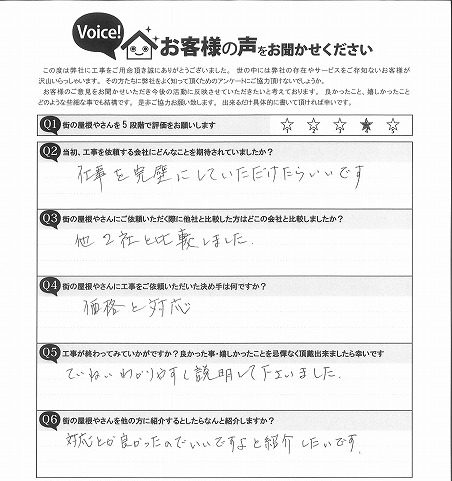 Voice!
お客様の声をお聞かせください
この度は弊社に工事をご用命頂き誠にありがとうございました。 世の中には弊社の存在やサービスをご存知ないお客様が
沢山いらっしゃいます。 その方たちに弊社をよく知って頂くためのアンケートにご協力頂けないでしょうか。
お客様のご意見をお聞かせいただき今後の活動に反映させていただきたいと考えております。 良かったこと、嬉しかったこと
どのような些細な事でも結構です。 是非ご協力お願い致します。 出来るだけ具体的に書いて頂ければ幸いです。
Q1 街の屋根やさんを5段階で評価をお願いします ☆ ☆ ☆ ★ ☆
Q2 当初、工事を依頼する会社にどんなことを期待されていましたか?
仕事を完璧にしていただけたらいいです
Q3 街の屋根やさんにご依頼いただく際に他社と比較した方はどこの会社と比較しましたか?
他2社と比較しました.
Q4 街の屋根やさんに工事をご依頼いただいた決め手は何ですか?
価格と対応
Q5 工事が終わってみていかがですか?良かった事・嬉しかったことを忌憚なく頂戴出来ましたら幸いです
ていねいわかりやすく説明して下さいました.
Q6 街の屋根やさんを他の方に紹介するとしたらなんと紹介しますか?
対応とか良かったのでいいですよと紹介したいです.